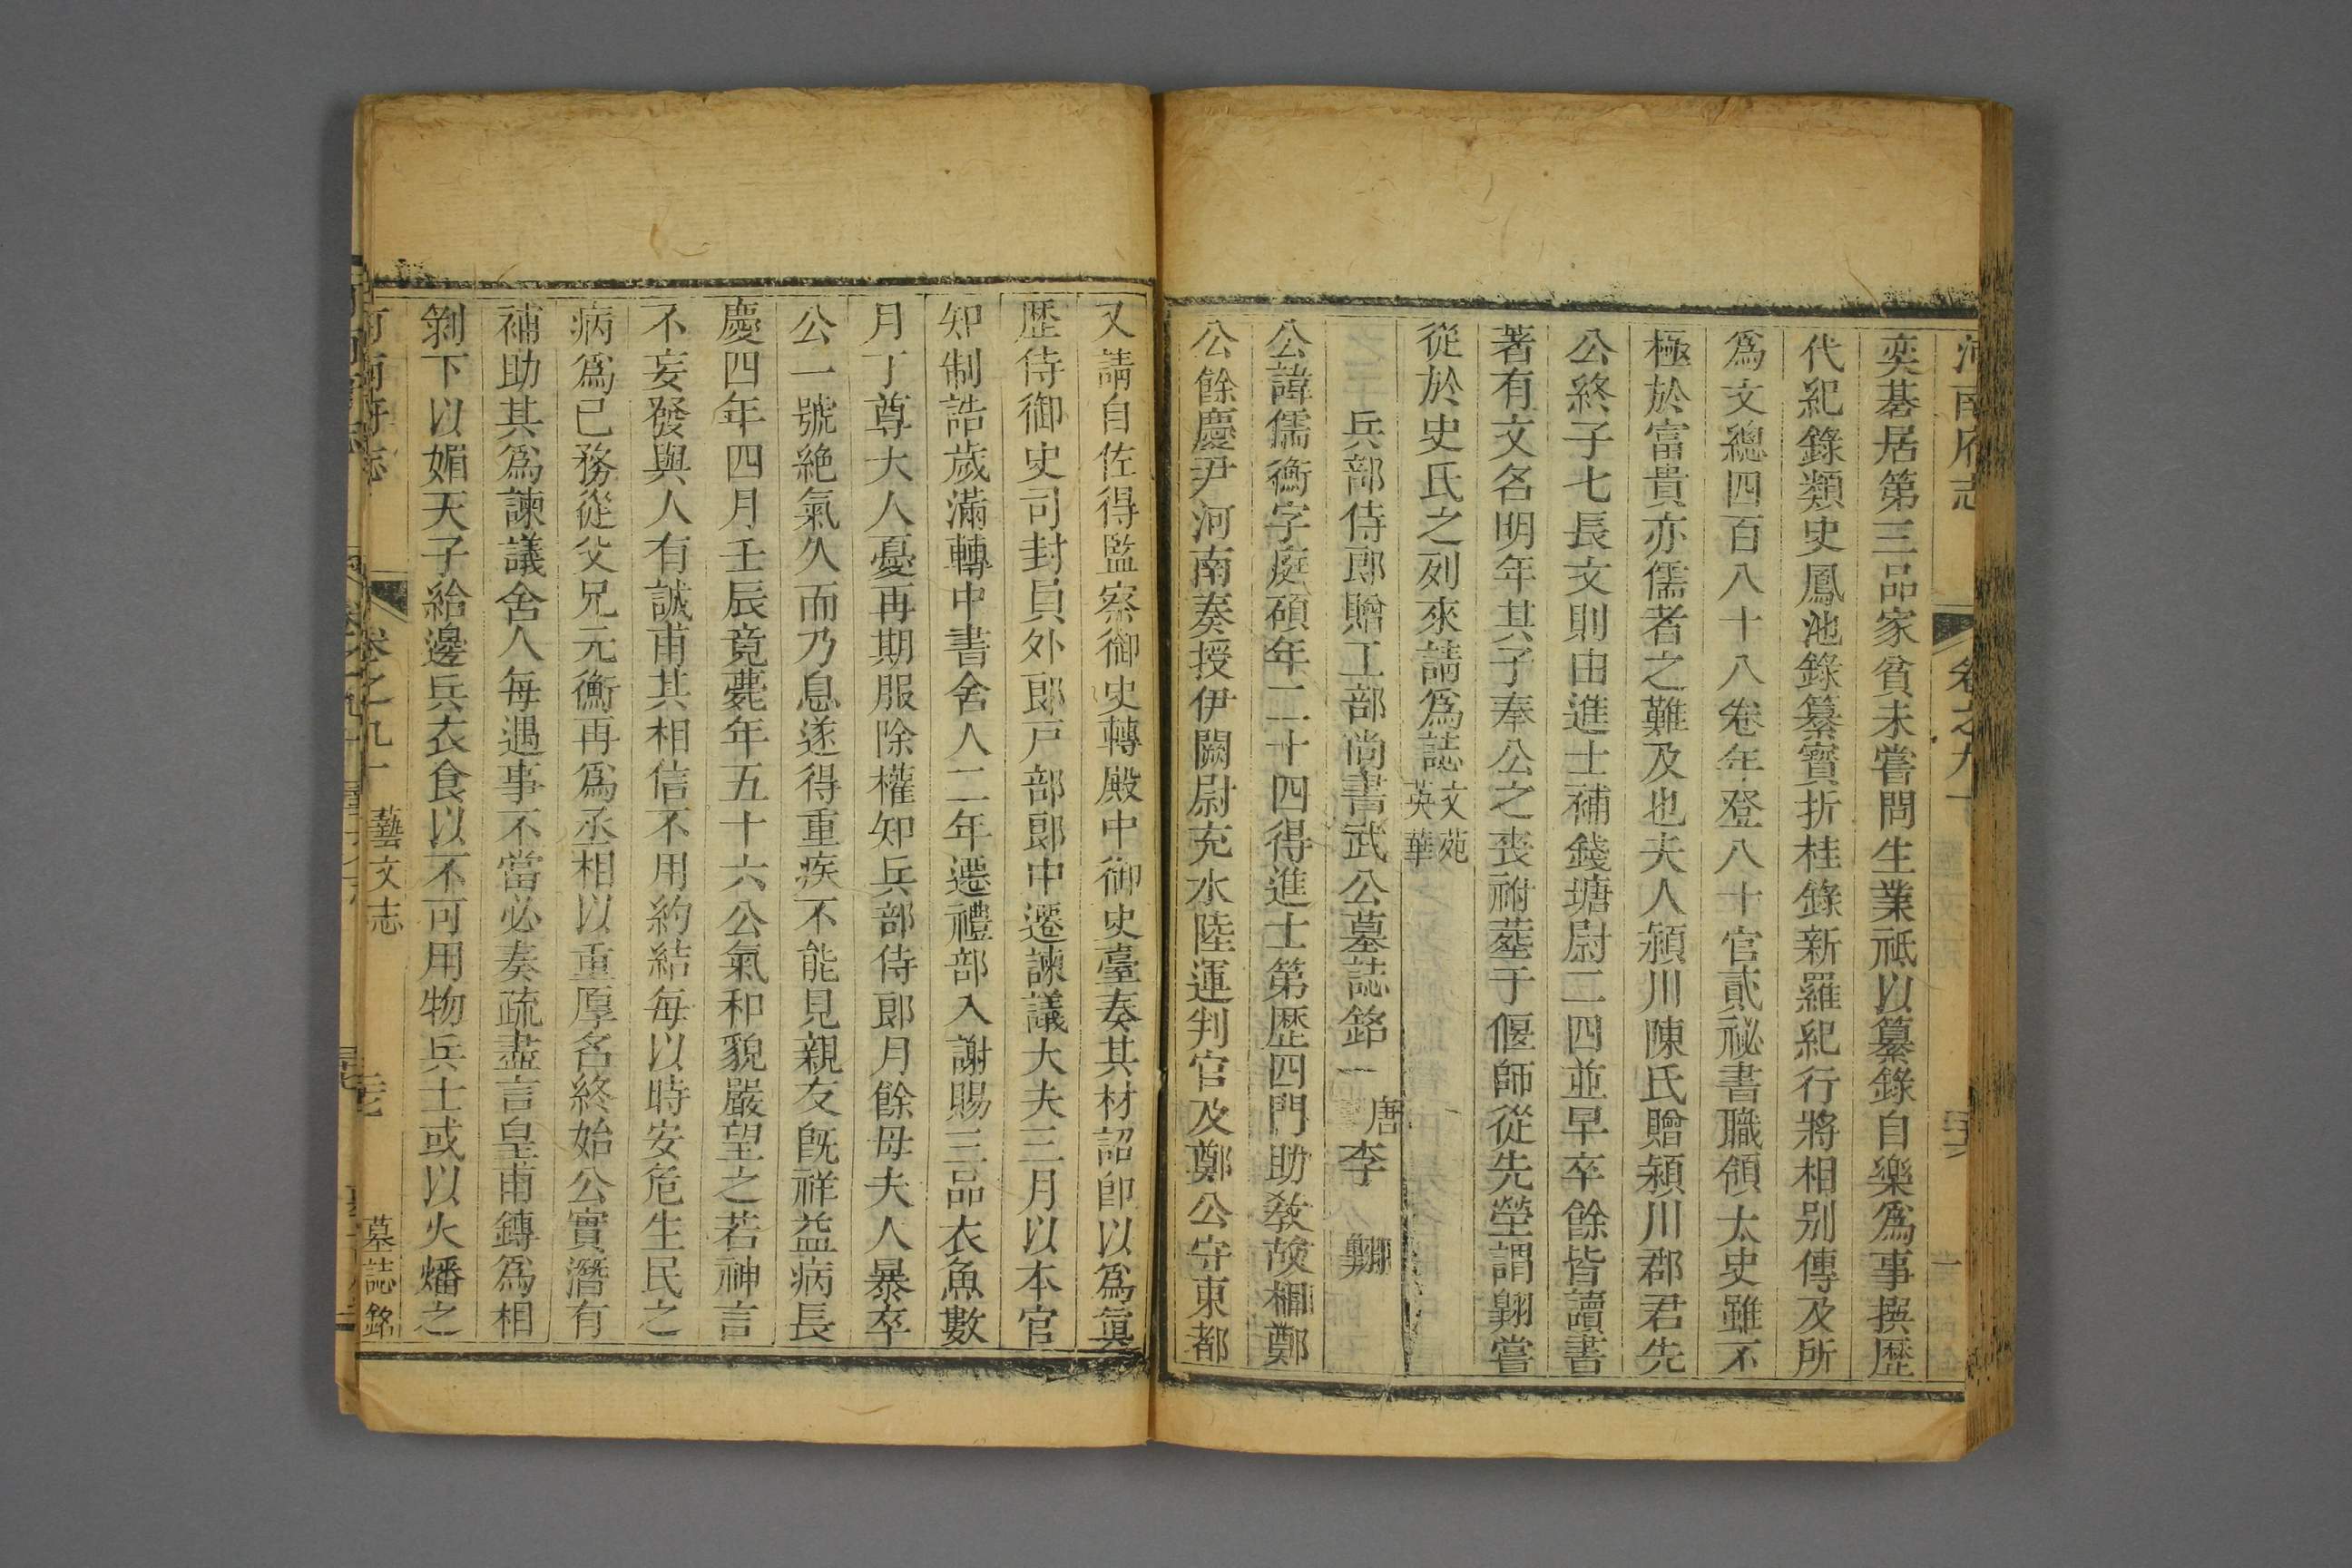 河南府志 卷之九十
奕棊居第三品家貧未嘗問生業祗以纂錄自樂爲事撰歴
代紀錄類史鳳池錄纂寶折桂錄新羅紀行將相別傳及所
爲文總四百八十八卷年登八十官貳祕書職領太史雖不
極於富貴亦儒者之難及也夫人潁川陳氏贈潁川郡君先
公終子七長文則由進士補錢塘尉二四並早卒餘皆讀書
著有文名明年其子奉公之喪祔塟于偃師從先塋謂翺嘗
從於史氏之列來請爲誌文苑英華
兵部侍郎贈工部尚書武公墓誌銘 唐李翺
公諱儒衡字庭碩年二十四得進士第歴四門助敎故相鄭
公餘慶尹河南奏授伊闕尉充水陸運判官及鄭公守東都
又請自佐得監察御史轉殿中御史臺奏其材詔卽以爲眞
歴侍御史司封員外郎戸部郎中遷諫議大夫三月以本官
知制誥歲滿轉中書舍人二年遷禮部入謝賜三品衣魚數
月丁尊大人憂再期服除權知兵部侍郎月餘母夫人暴卒
公一號絶氣久而乃息遂得重疾不能見親友旣祥益病長
慶四年四月壬辰竟薨年五十六公氣和貌嚴望之若神言
不妄發與人有誠甫其相信不用約結每以時安危生民之
病爲已務從父兄元衡再爲丞相以重厚名終始公實潛有
補助其爲諫議舍人每遇事不當必奏疏盡言皇甫鎛爲相
剝下以媚天子給邊兵衣食以不可用物兵士或以火燔之
河南府志 卷之九十 藝文志 墓誌銘